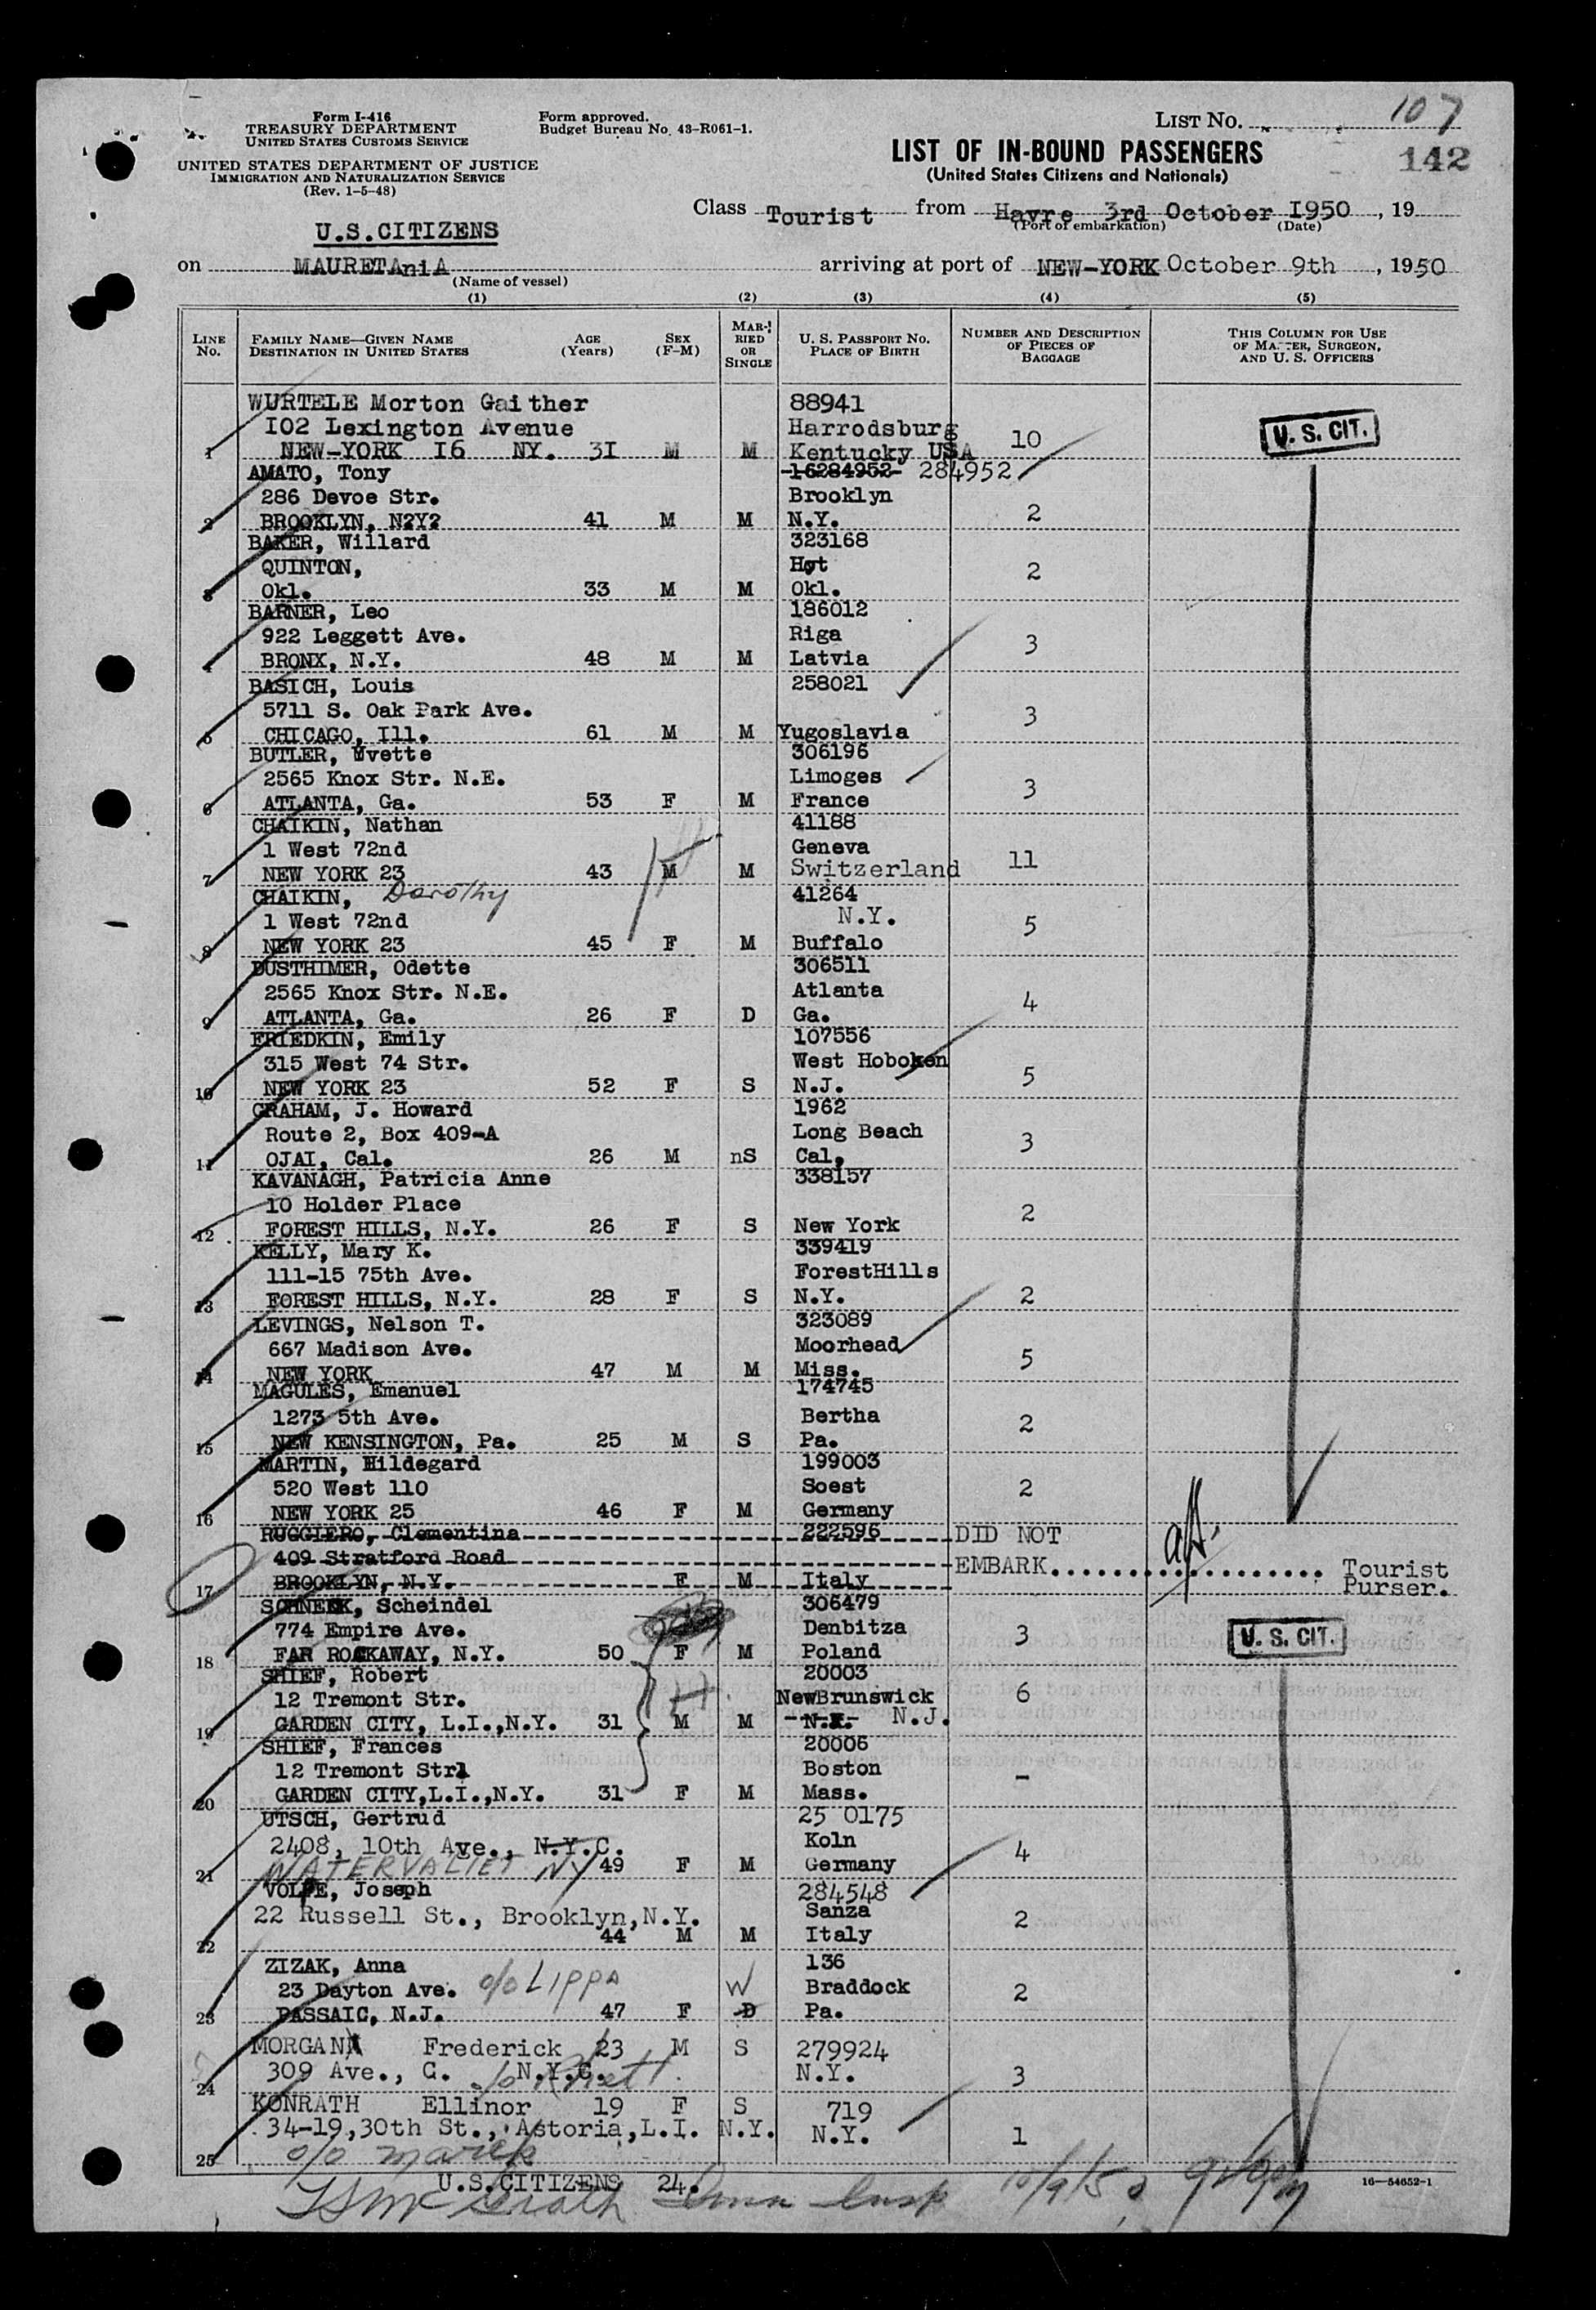 Form I-416
TREASURY DEPARTMENT
UNITED STATES CUSTOMS SERVICE
UNITED STATES DEPARTMENT OF JUSTICE
IMMIGRATION AND NATURALIZATION SERVICE
(Rev. 1-5-48)
Form approved.
Budget Bureau No. 43-R061-1.
LIST NO. 107
142
LIST OF IN-BOUND PASSENGERS
(United States Citizens and Nationals)
Class Tourist from Havre 3rd October I950, 19
(Port of embarkation) (Date)
U.S.CITIZENS
on MAURETAniA arriving at port of NEW-YORK October 9th, 1950
(Name of vessel)
(1) (2) (3) (4) (5)
LINE No. FAMILY NAME—GIVEN NAME DESTINATION IN UNITED STATES AGE (Years) SEX (F-M) MARRIED OR SINGLE U. S. PASSPORT NO. PLACE OF BIRTH NUMBER AND DESCRIPTION OF PIECES OF BAGGAGE THIS COLUMN FOR USE OF MASTER, SURGEON, AND U. S. OFFICERS
WURTELE Morton Gaither 88941
I02 Lexington Avenue Harrodsburg 10 U. S. CIT.
1 NEW-YORK I6 NY. 3I M M Kentucky USA
AMATO, Tony 16284952 284952
286 Devoe Str. Brooklyn 2
2 BROOKLYN, N?Y? 41 M M N.Y.
BAKER, Willard 323168
QUINTON, Hot 2
3 Okl. 33 M M Okl.
BARNER, Leo 186012
922 Leggett Ave. Riga 3
4 BRONX, N.Y. 48 M M Latvia
BASICH, Louis 258021
5711 S. Oak Park Ave. 3
5 CHICAGO, Ill. 61 M M Yugoslavia
BUTLER, Yvette 306196
2565 Knox Str. N.E. Limoges 3
6 ATLANTA, Ga. 53 F M France
CHAIKIN, Nathan 41188
1 West 72nd Geneva 11
7 NEW YORK 23 43 M M Switzerland
CHAIKIN, Dorothy 41264
1 West 72nd N.Y. 5
8 NEW YORK 23 45 F M Buffalo
DUSTHIMER, Odette 306511
2565 Knox Str. N.E. Atlanta 4
9 ATLANTA, Ga. 26 F D Ga.
FRIEDKIN, Emily 107556
315 West 74 Str. West Hoboken 5
10 NEW YORK 23 52 F S N.J.
GRAHAM, J. Howard 1962
Route 2, Box 409-A Long Beach 3
11 OJAI, Cal. 26 M nS Cal,
KAVANAGH, Patricia Anne 338157
10 Holder Place 2
12 FOREST HILLS, N.Y. 26 F S New York
KELLY, Mary K. 339419
111-15 75th Ave. ForestHills 2
13 FOREST HILLS, N.Y. 28 F S N.Y.
LEVINGS, Nelson T. 323089
667 Madison Ave. Moorhead 5
14 NEW YORK 47 M M Miss.
MAGULES, Emanuel 174745
1273 5th Ave. Bertha 2
15 NEW KENSINGTON, Pa. 25 M S Pa.
MARTIN, Hildegard 199003
520 West 110 Soest 2
16 NEW YORK 25 46 F M Germany
RUGGIERO, Clementina 222596 DID NOT
409 Stratford Road EMBARK.................. Tourist
17 BROOKLYN, N.Y. F M Italy Purser.
Scheindel 306479
774 Empire Ave. Denbitza 3 U. S. CIT.
18 FAR ROCKAWAY, N.Y. 50 F M Poland
SHIEF, Robert 20003
12 Tremont Str. NewBrunswick 6
19 GARDEN CITY, L.I.,N.Y. 31 M M N.J.
SHIEF, Frances 20006
12 Tremont Str. Boston -
20 GARDEN CITY,L.I.,N.Y. 31 F M Mass.
UTSCH, Gertrud 25 0175
2408, 10th Ave., N.Y.C. Koln 4
21 WATERVALIET NY 49 F M Germany
VOLPE, Joseph 284548
22 Russell St., Brooklyn,N.Y. Sanza 2
22 44 M M Italy
ZIZAK, Anna 136
23 Dayton Ave. c/o LIPPA W Braddock 2
23 PASSAIC, N.J. 47 F D Pa.
MORGAN Frederick 23 M S 279924
24 309 Ave., C. N.Y.C. N.Y. 3
KONRATH Ellinor 19 F S 719
34-19,30th St., Astoria,L.I. N.Y. N.Y. 1
25 c/o marek
U.S.CITIZENS 24.
10/9/50
16—54652-1